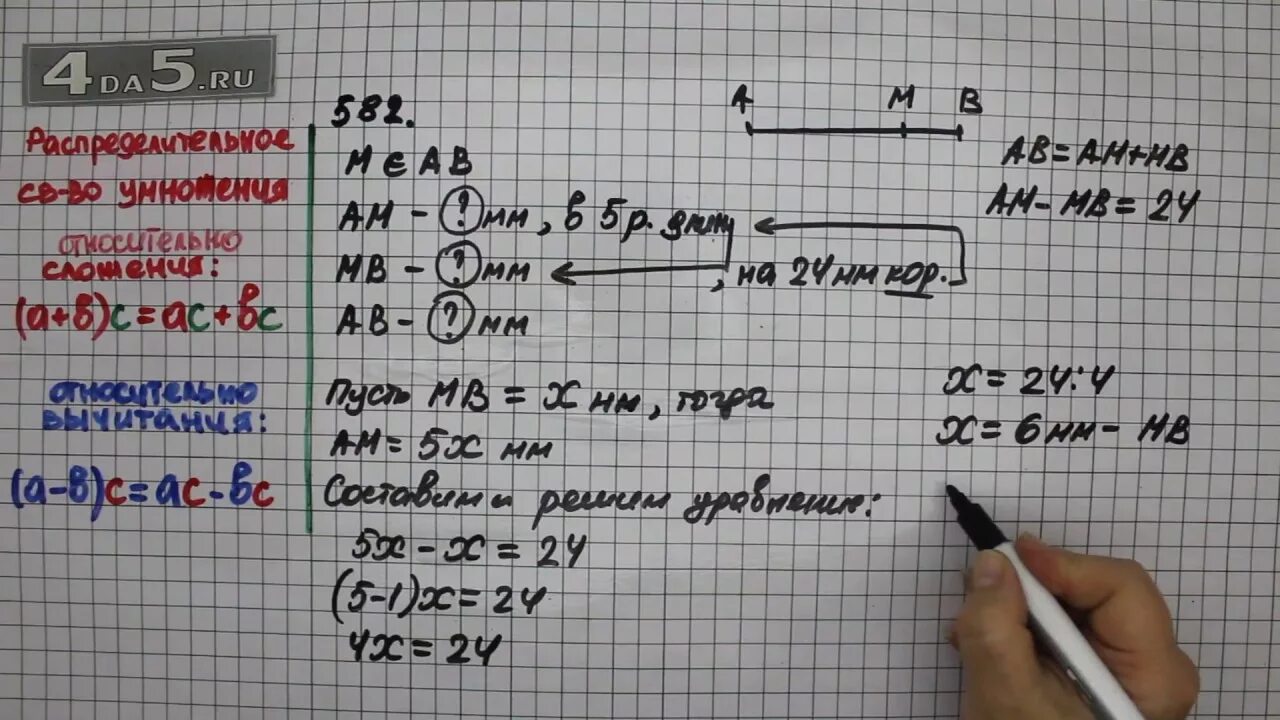 4DA5.RU
Распределительное
св-во умножения
относительно
сложения:
(a+b)c=ac+bc
относительно
вычитания:
(a-b)c=ac-bc
582.
M ∈ AB
AM - ? мм, в 5 р. длин
MB - ? мм, на 24 мм кор.
AB - ? мм
Пусть MB = x мм, тогда
AM = 5x мм
Составим и решим уравнение:
5x - x = 24
(5-1)x = 24
4x = 24
A M B
AB = AM+MB
AM - MB = 24
x = 24:4
x = 6 мм - MB